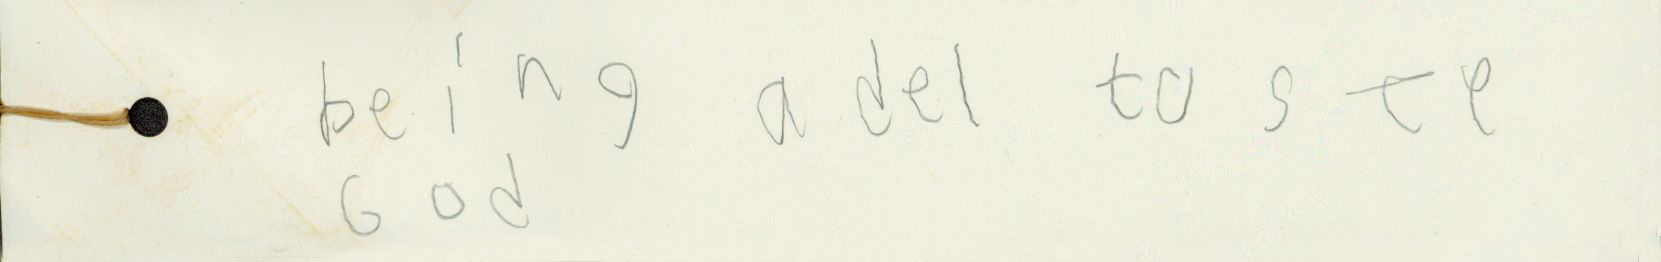 being adel to ste
God